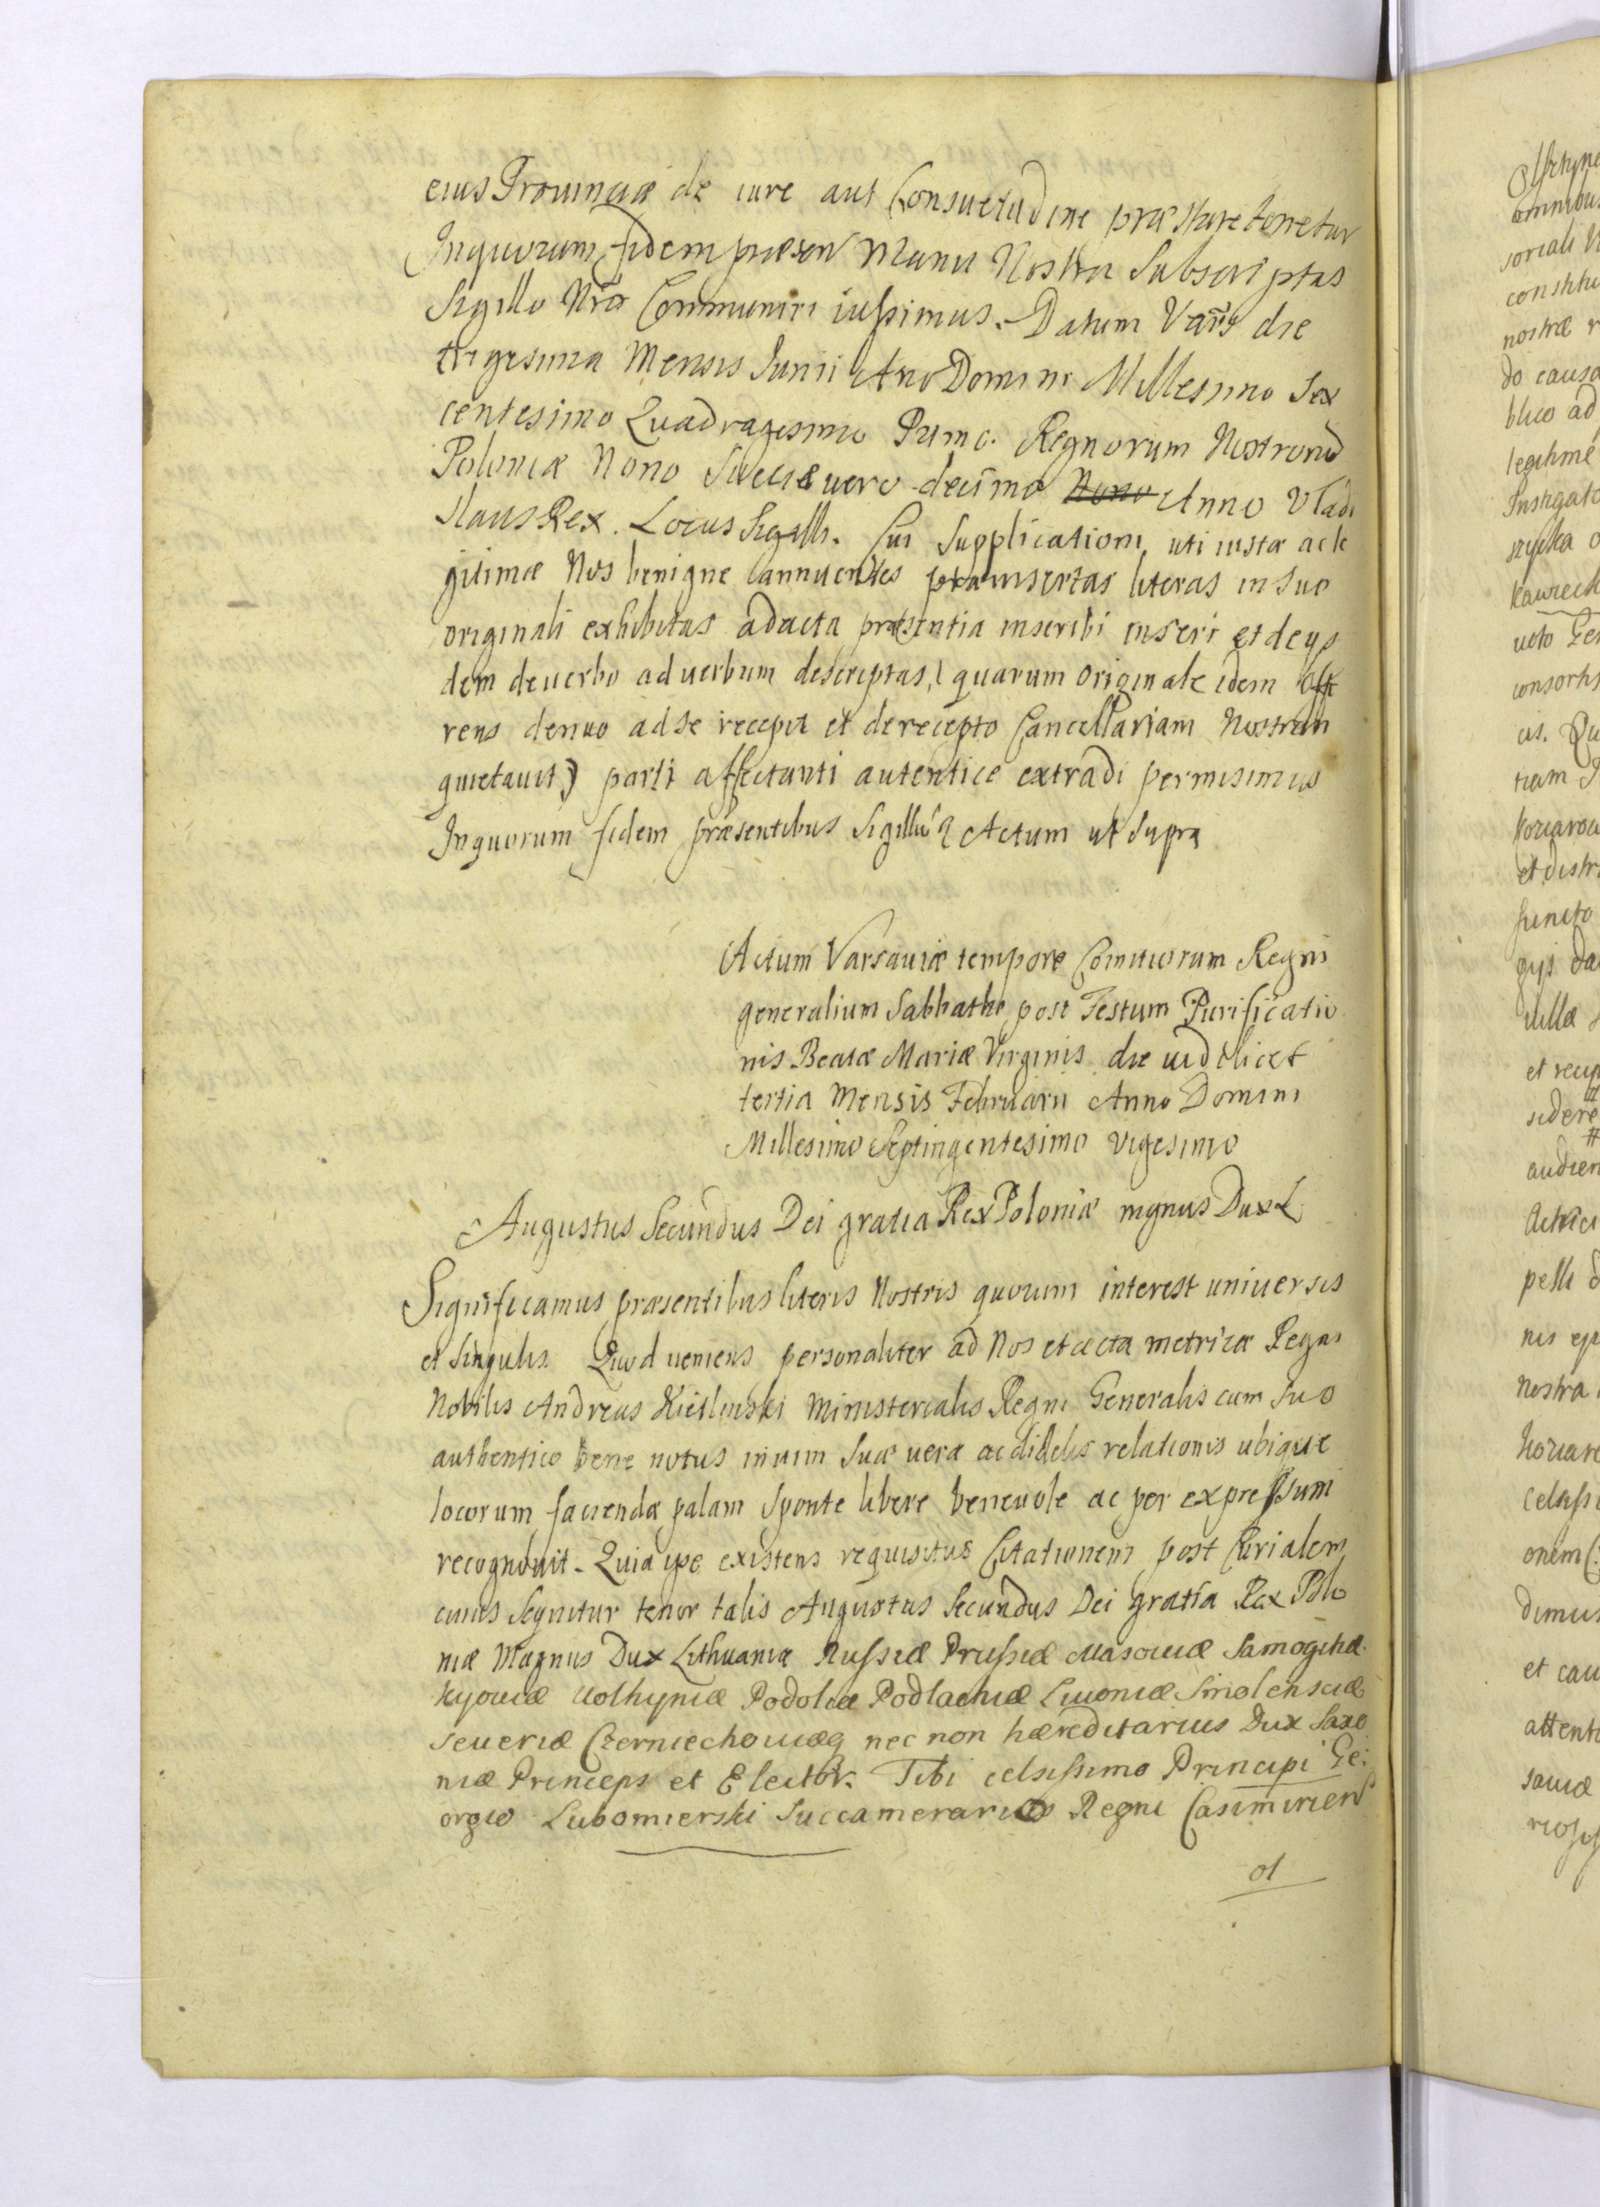 eius Prouinciæ de iure aut Consuetudine præstare tenetur
Inquorum fidem præsen Manu Nostra Subscriptas
Sigillo Nro Communiri iussimus. Datum Vars die
trigesima Mensis Junii Ano Domini Millesimo Sex
centesimo Quadragesimo Primo. Regnorum Nostroru
Poloniæ Nono Sueciæ uero decimo Anno Vladi
slaus Rex. Locus Sigilli. Cui Supplicationi uti iustæ ac le
gitimæ Nos benigne annuentes præinsertas literas in suo
originali exhibitas ad acta præsentia inscribi inseri et deys
dem de uerbo ad uerbum descriptas, ( quarum originale idem offe
rens denuo ad se recepit et de recepto Cancellariam Nostram
quietauit ) parti affectanti autentice extradi permisimus
Inquorum fidem præsentibus Sigillũ Actum ut Supra
Actum Varsauiæ tempore Comitiorum Regni
generalium Sabbatho post Festum Purificatio
nis Beatæ Mariæ Virginis die uidelicet
tertia Mensis Februarii Anno Domini
Millesimo Septingentesimo Vigesimo
Augustus Secundus Dei gratia Rex Poloniæ mgnus Dux L
Significamus præsentibus literis Nostris quorum interest uniuersis
et Singulis Quod ueniens personaliter ad Nos et acta metricæ Regni
Nobilis Andreas Kietlinski Ministerialis Regni Generalis cum Suo
authentico bene notus inuim Suæ veræ ac didelis relationis ubique
locorum faciendæ palam Sponte libere beneuole ac per expressum
recognouit. Quia ipse existens requisitus Citationem post Curialem
cuius Sequitur tenor talis Augustus Secundus Dei gratia Rex Polo
niæ Magnus Dux Lithuaniæ Russiæ Prussiæ Masouiæ Samogitiæ
Kyouiæ Uolhyniæ Podoliæ Podlachiæ Liuoniæ Smolensciæ
Seueriæ Czerniechouiæq nec non hæreditarius Dux Saxo
niæ Princeps et Elector. Tibi celsissimo Principi Ge:
orgio Lubomierski Succamerario Regni Casimirien
ol